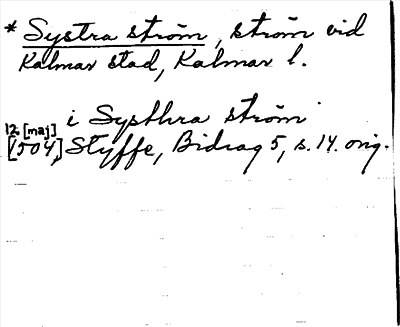 * Systra ström, ström vid
Kalmar stad, Kalmar l.
i Systhra ström
12 [maj]
[1504], Styffe, Bidrag 5, s. 14. orig.